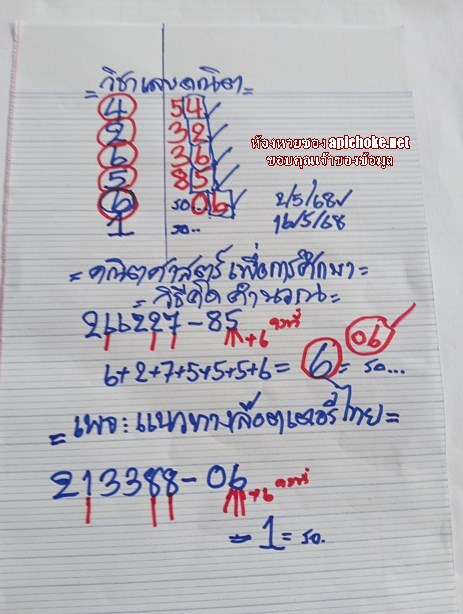 = วิชาเลขคณิต =
4 54 ✓
2 32 ✓
6 36 ✓
5 85 ✓
6 รอ.. 06 ✓
1 รอ..
ห้องหวยซอง apichoke.net
ขอบคุณเจ้าของข้อมูล
2/5/68
16/5/68
= คณิตศาสตร์ เพื่อการศึกษา =
= วิธีคิด คำนวณ =
211227 - 85
+6 คงที่
06
6+2+7+5+5+5+6 = 6 = รอ...
= เพจ: แนวทางล๊อตเตอรี่ไทย =
213388 - 06
+6 คงที่
- 1 = รอ.